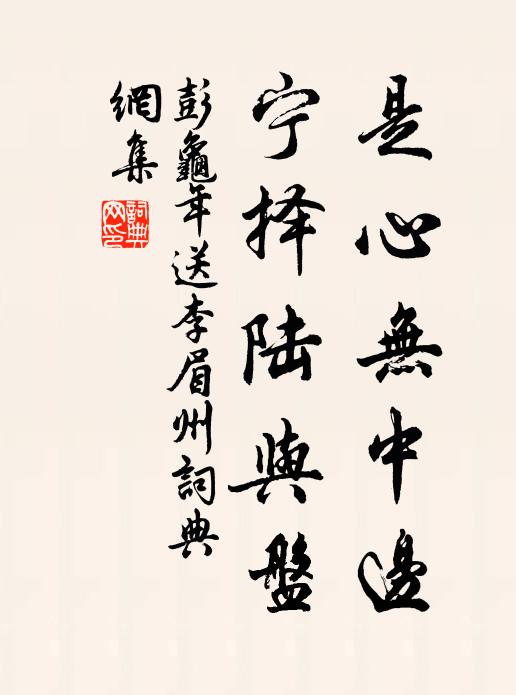 是心無中邊
宁择陆與盤
彭龜年送李眉州詞典
網集
詞典网印